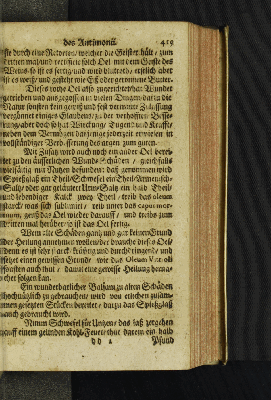 des Antimonii. 419
ste durch eine Retorten/ welcher die Geister hält/ zum
dritten mal/ und rectificir solch Oel mit dem Geiste des
Weins/ so ist es fertig/ und wird blutroth/ erstlich aber
ist es weiß/ und gestehet wie Eiß oder geronnene Butter.
Dieses rothe Oel also zugerichtet hat Wunder
getrieben und ausgericht in vielen Dingen/ da die
Natur sonsten kein
vergönnet einiges Glaubens/ zu der verhofften Besse-
rung/ aber doch solche Wirckung/ Tugend und Krafft/
neben dem Vermögen darinne jederzeit erwiesen in
vollständiger Verbesserung des argen zum guten.
Mit Zusatz wird auch noch ein ander Oel berei-
tet zu den äusserlichen Wunds-Schäden/ gleichfalls
vielfältig mit Nutzen befunden: daß genommen wird
Spießglaß ein Theil/ Schwefel ein Theil/ Armenisch-
Saltz oder gar geläutert Urin-Saltz ein halb Theil
und lebendiger Kalck zwey Theil/ treib das oleum
starck/ was sich sublimirt/ reib unter das caput mor-
tuum, geuß das Oel wieder darauff/ und treibs zum
dritten mal herüber/ so ist das Oel fertig.
Wem alte Schäden gantz und gar keinen Grund
der Heilung annehmen wollen/ der brauche dieses Oel/
denn es ist sehr starck/ kräfftig und durchdringend/ und
setzet einen gewissen Grund/ wie das Oleum Vitrioli
sonsten auch thut/ damit eine gewisse Heilung herna-
cher folgen kan.
Ein wunderbarlicher Balsam zu alten Schäden
hochnützlich zu gebrauchen/ wird von etlichen zusam-
men gesetzten Stücken bereitet/ darzu das Spießglaß
auch gebraucht wird.
Nimm Schwefel vier Untzen/ das laß zergehen
auff einem gelinden Kohl-Feuer/ thue darein ein halb
Pfund